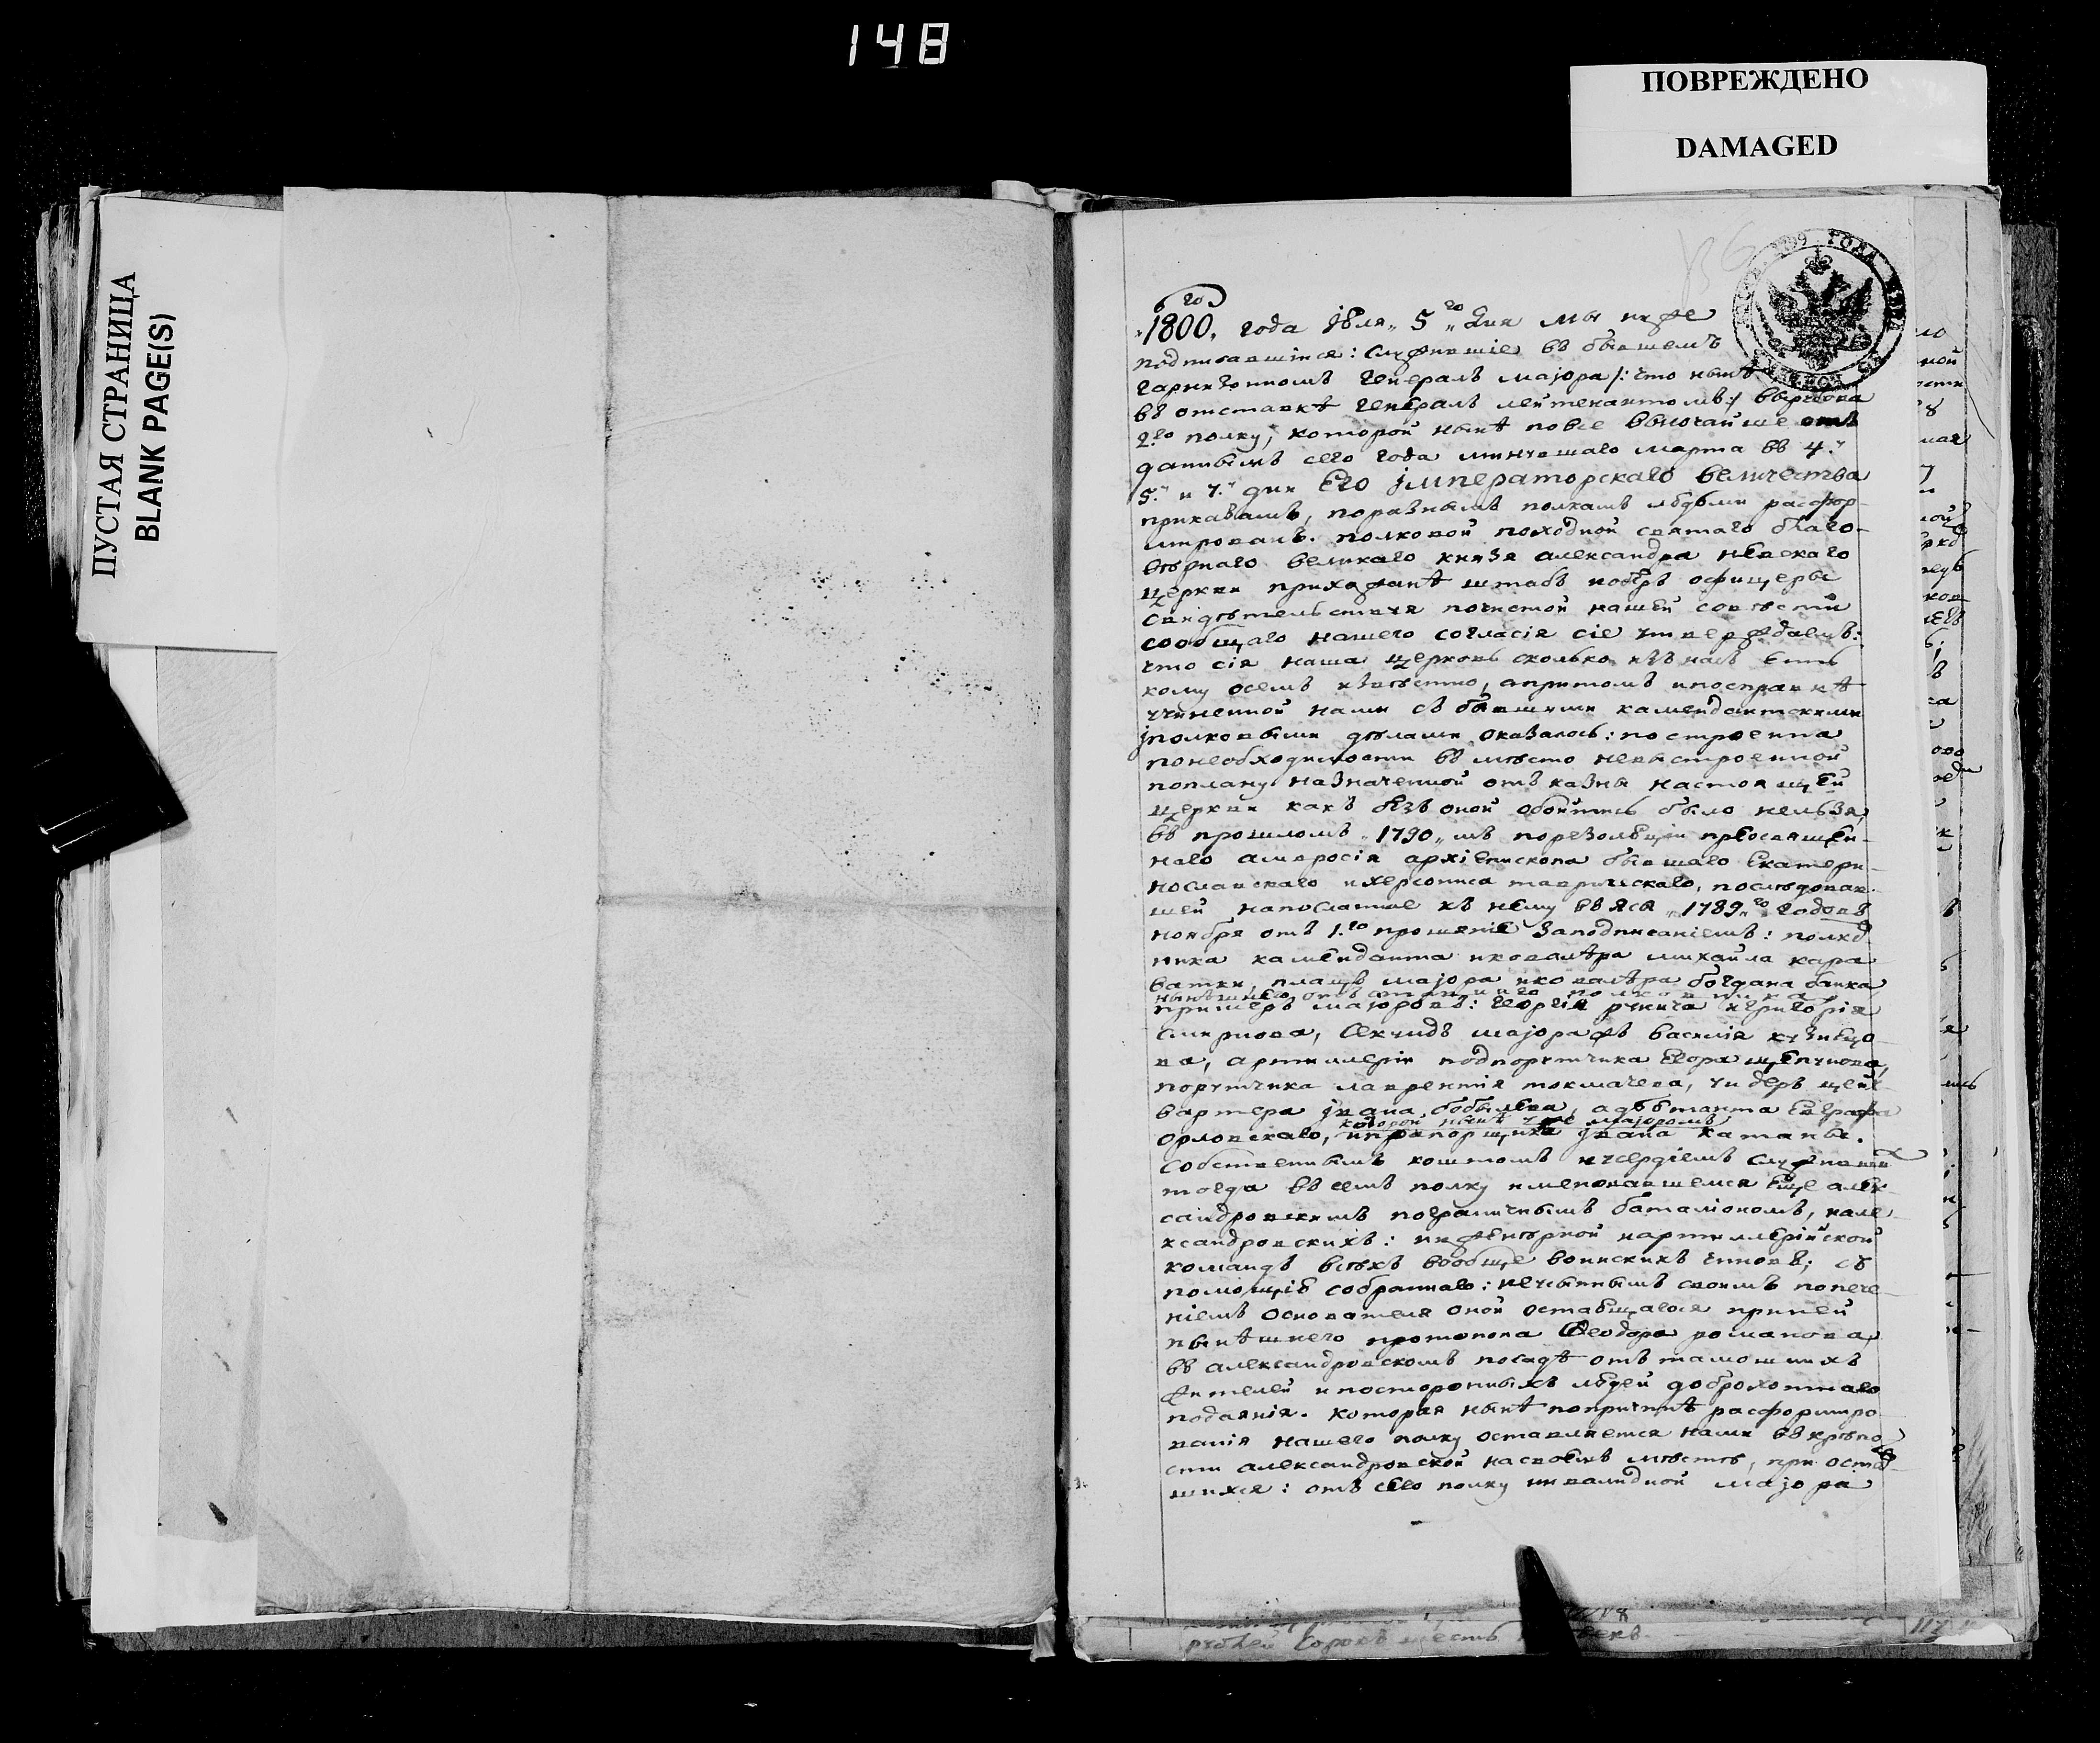 148
ПОВРЕЖДЕНО
DAMAGED
ПУСТАЯ СТРАНИЦА
BLANK PAGE(S)
1800,го года Іюля 5го дня мы ниже
подписавшіися: служившіе въ бывшемъ
гарнизонномъ генералъ маіора /: что нынѣ
въ отставкѣ генералъ лейтенантомъ:/ вырубова
2го полку, которой нынѣ по все высочайше отъ
даннымъ сего года минувшаго марта въ 4.
5. и 7. дни Его Императорскаго величества
приказамъ, поразнымъ полкамъ людьми расфор-
мированъ. полковой походной святаго благо-
вѣрнаго великаго князя александра невскаго
церкви прихожанѣ штабъ иоберъ офицеры
свидѣтельствуя почистой нашей совѣсти
сообщаго нашего согласія сіе утверждаемъ:
что сія наша церковь сколько изъ насъ есть
кому осемъ извѣстно, апритомъ ипосправкѣ
учиненной нами съ бывшими камендантскими
іполковыми дѣлами оказалось: построенна
понеобходимости въ мѣсто невыстроенной
поплану назначенной отъ казны настоящей
церкви какъ безъ оной обойтись было нельзя,
въ прошломъ 1790 мъ порезолюціи преосвящен-
наго амвросія архіепископа бывшаго Екатери-
нославскаго ихерсониса таврическаго, послѣдовав-
шей напосланное къ нему въ Яси 1789го годовъ
ноября отъ 1.го прошеніе заподписаніемъ: полко
ника каменданта икавалѣра михайла кара
ватки, плацъ маіора икавалѣра богдана банка
нынѣшнего отставнаго полковника
примеръ маіоровъ: георгія рунича игригорія
смирнова, секундъ маіоражъ василія кузнецо
ва, артиллеріи подпорутчика Егора щепунова,
порутчика лаврентія токмачева, ундеръ цейг
вартера івана бобылева, адъютанта Евграфа
которой нынѣ уже маіоромъ
орловскаго, ипрапорщика івана катаны.
собственнымъ коштомъ иусердіемъ служивши
тогда въ семъ полку именовавшемся еще алек
сандровскимъ пограничнымъ баталіономъ, иале
ксандровскихъ: инженѣрной иартиллерійской
командъ всѣхъ вообще воинскихъ чиновъ; съ
помощію собраннаго: неусыпнымъ своимъ попече
ніемъ основателя оной оставщагося приней
нынѣшнего протопопа Феодора романова,
въ александровскомъ посадѣ отъ тамошнихъ
жителей ипостороннихъ людей доброхотнаго
подаянія. Которая нынѣ попричинѣ расформиро
ванія нашего полку оставляется нами въ крѣпо
сти александровской насвоемъ мѣстѣ, при остав
шихся: отъ сего полку инвалидной маіора
Сорокъ шесть